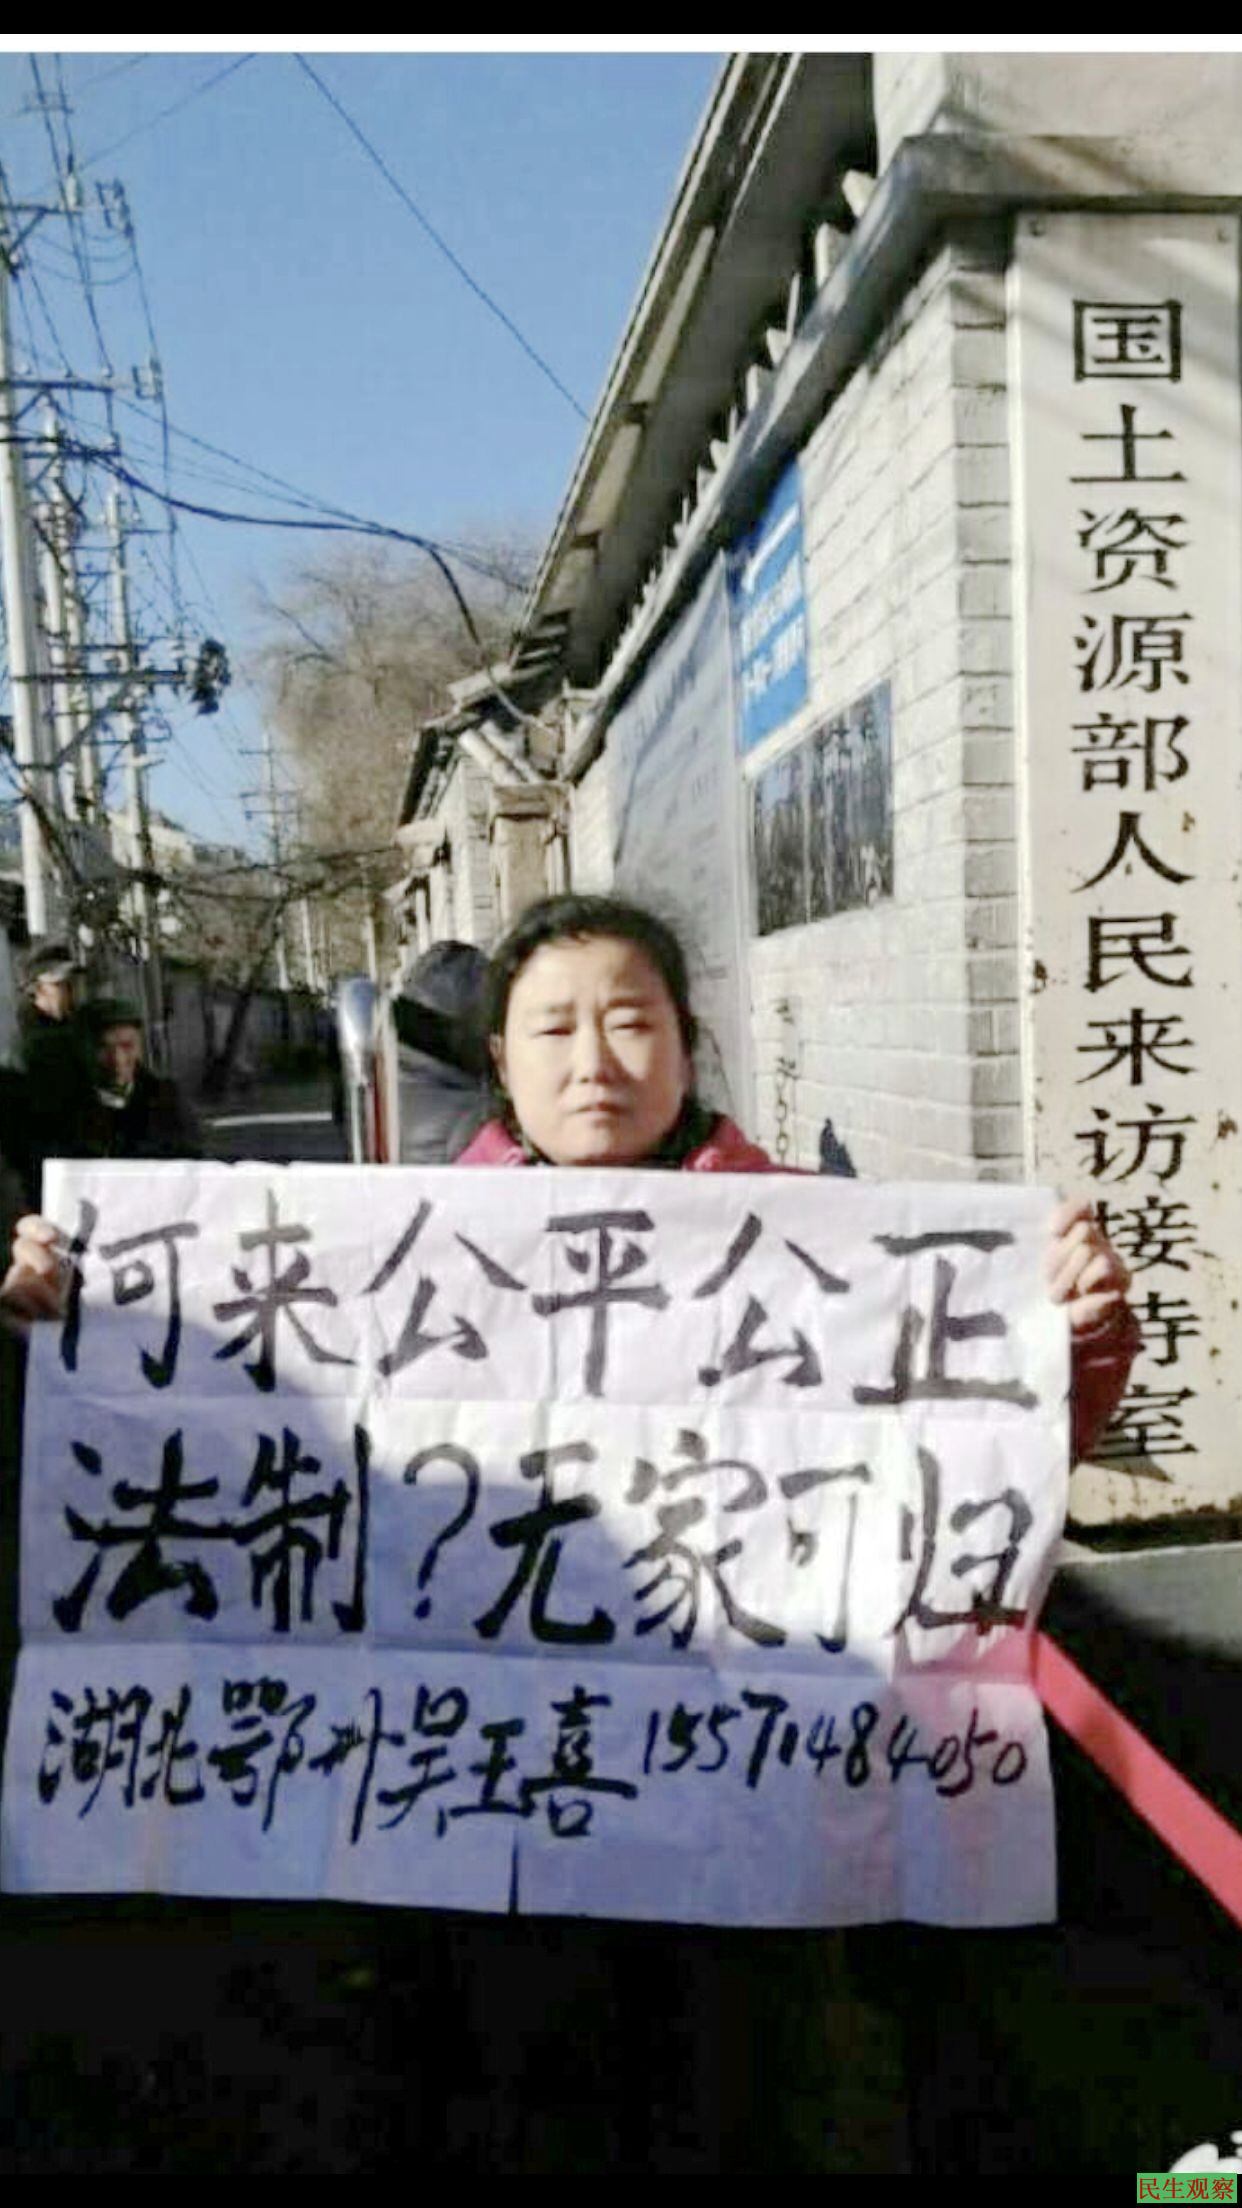 国土资源部人民来访接待室
何来公平公正
法制?无家可归
湖北鄂州吴玉喜15571484050
民生观察